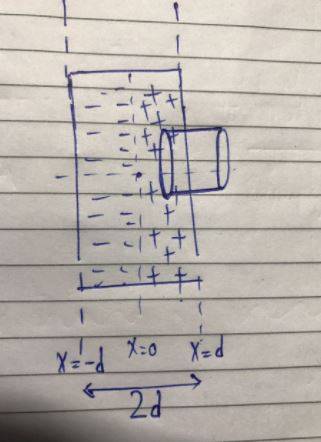 x=-d x=0 x=d
2d